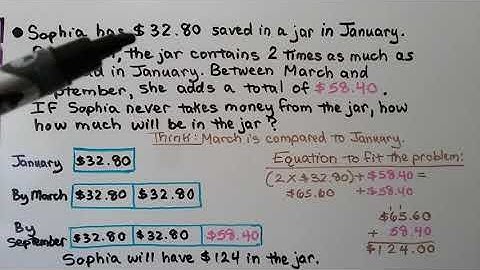 Sophia has $32.80 saved in a jar in January.
the jar contains 2 times as much as
in January. Between March and
September, she adds a total of $58.40.
IF Sophia never takes money from the jar, how
how much will be in the jar?
Think: March is compared to January.
January $32.80
By March $32.80 $32.80
By September $32.80 $32.80 $58.40
Equation to fit the problem:
(2 x $32.80) + $58.40 =
$65.60 + $58.40
11
$65.60
+ 58.40
$124.00
Sophia will have $124 in the jar.